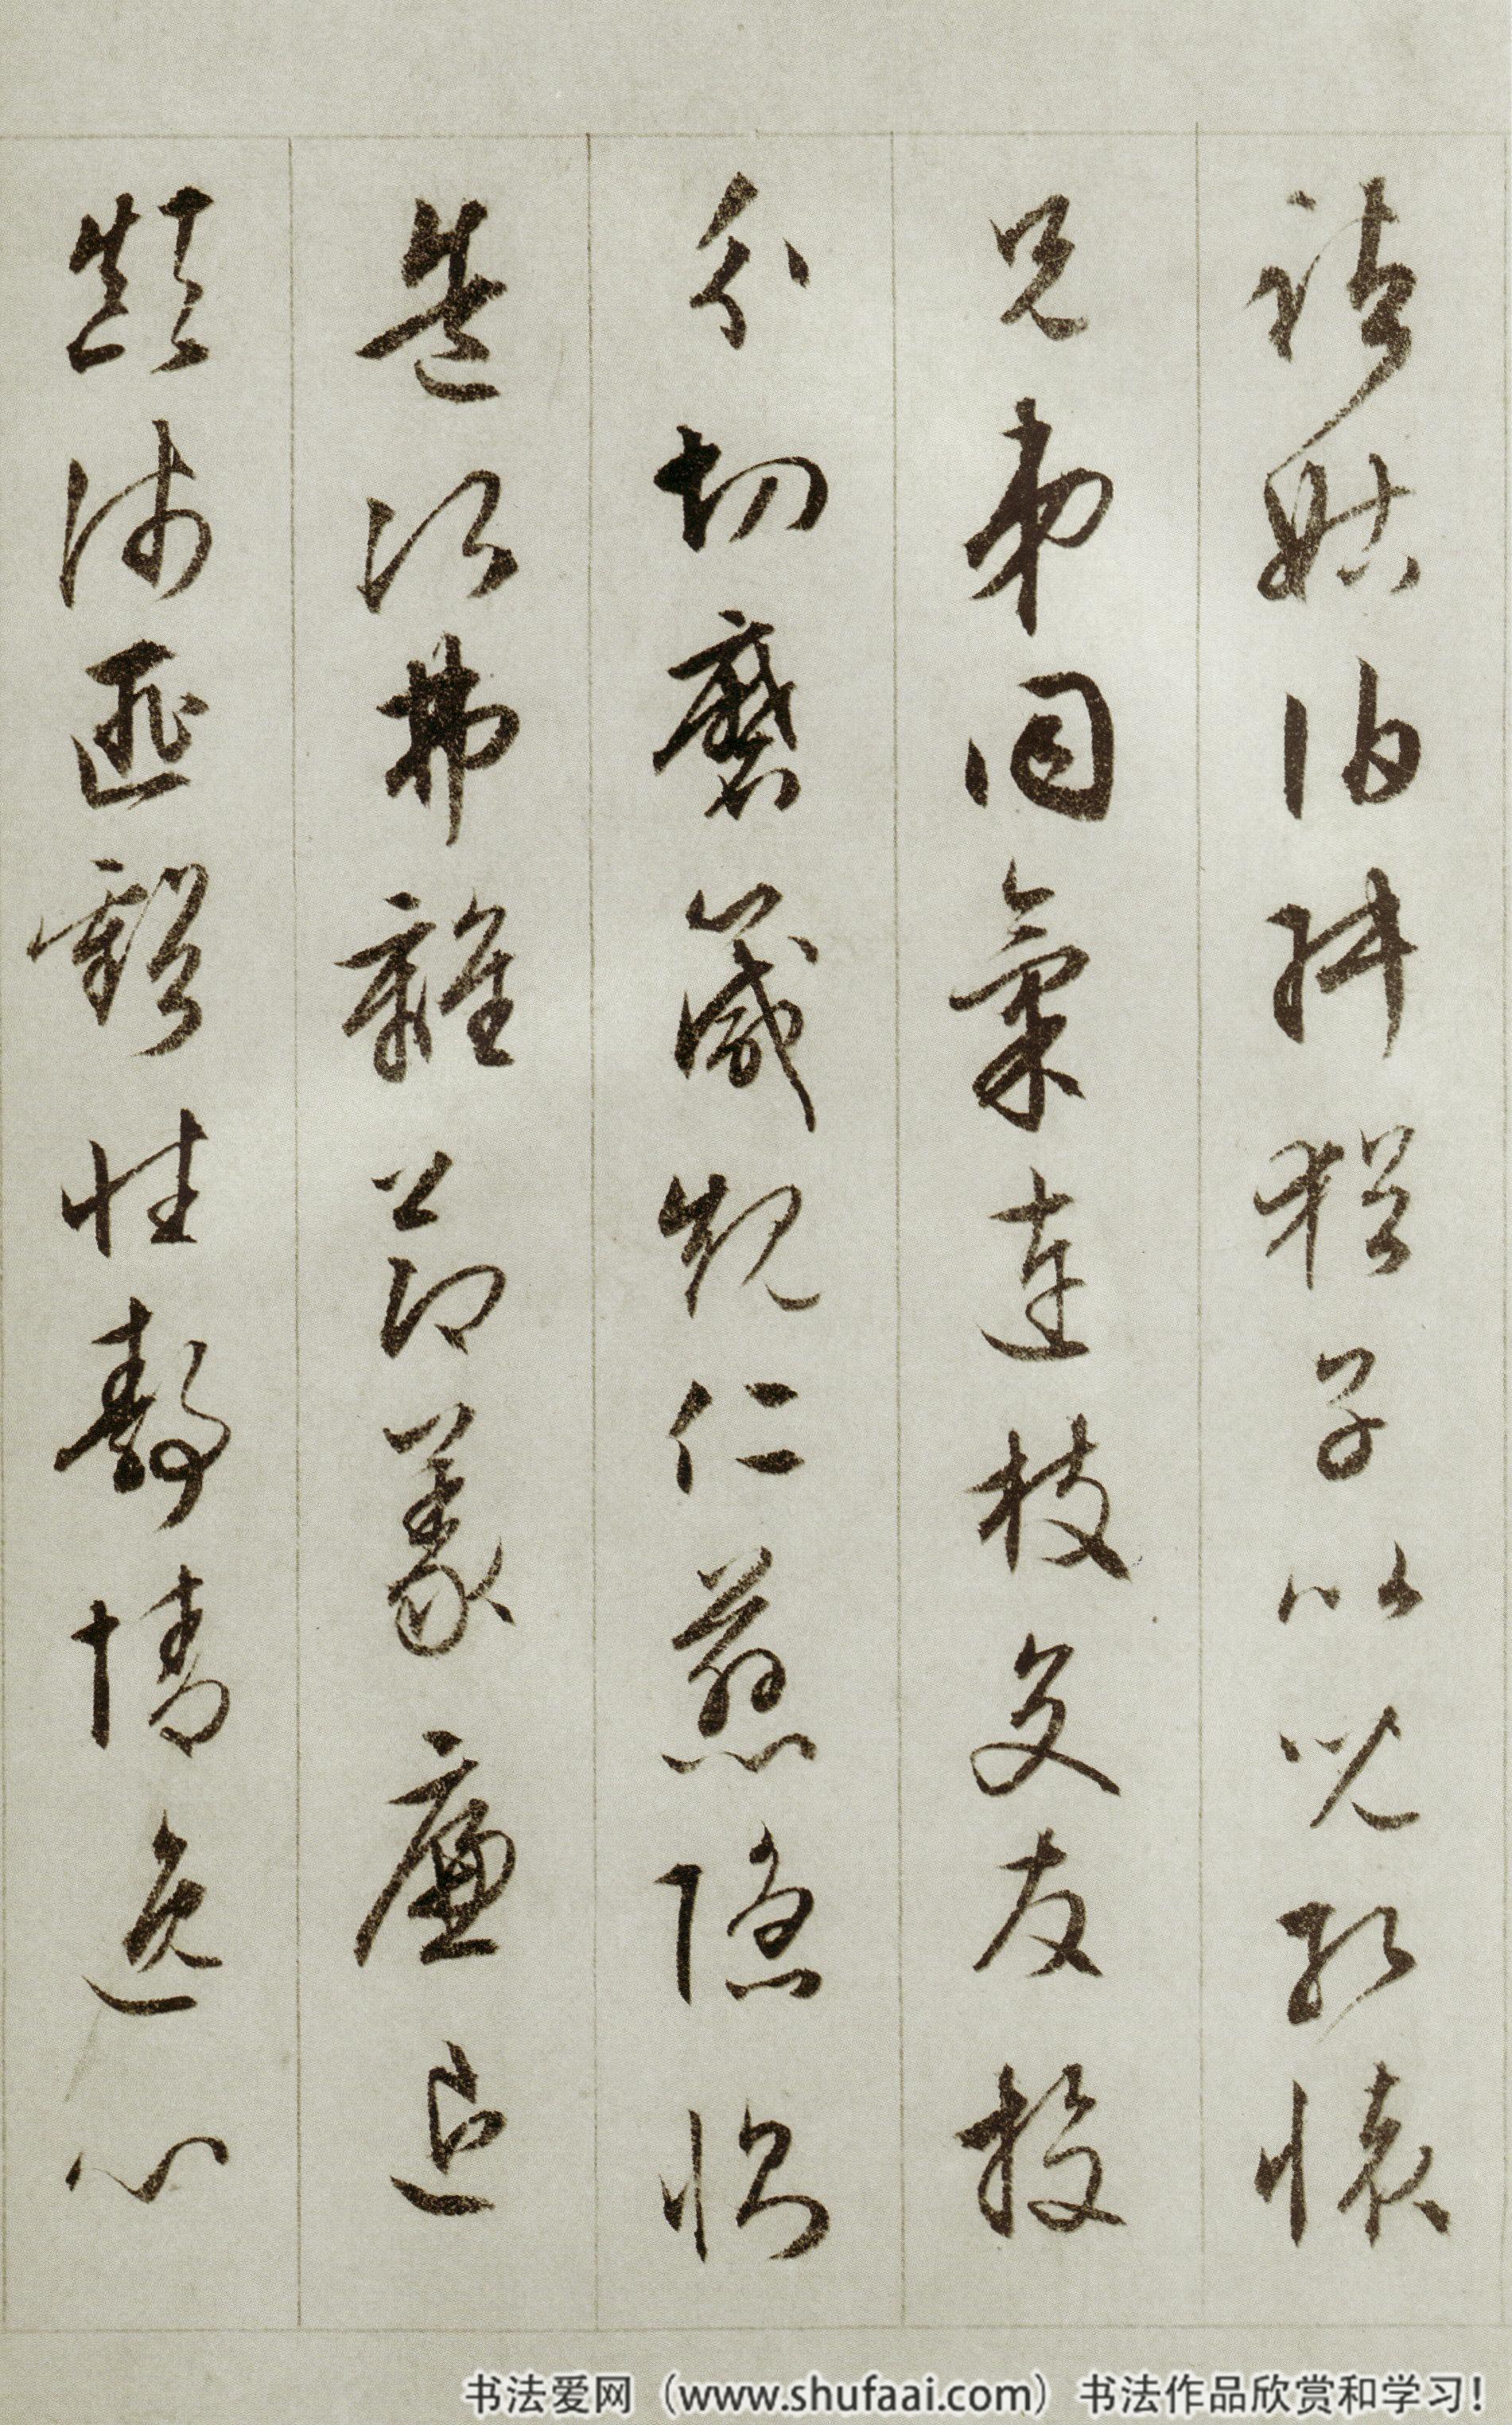 諸姑伯叔猶子比兒孔懷
兄弟同氣連枝交友投
分切磨箴規仁慈隱惻
造次弗離節義廉退
顛沛匪虧性靜情逸心
书法爱网（www.shufaai.com）书法作品欣赏和学习！